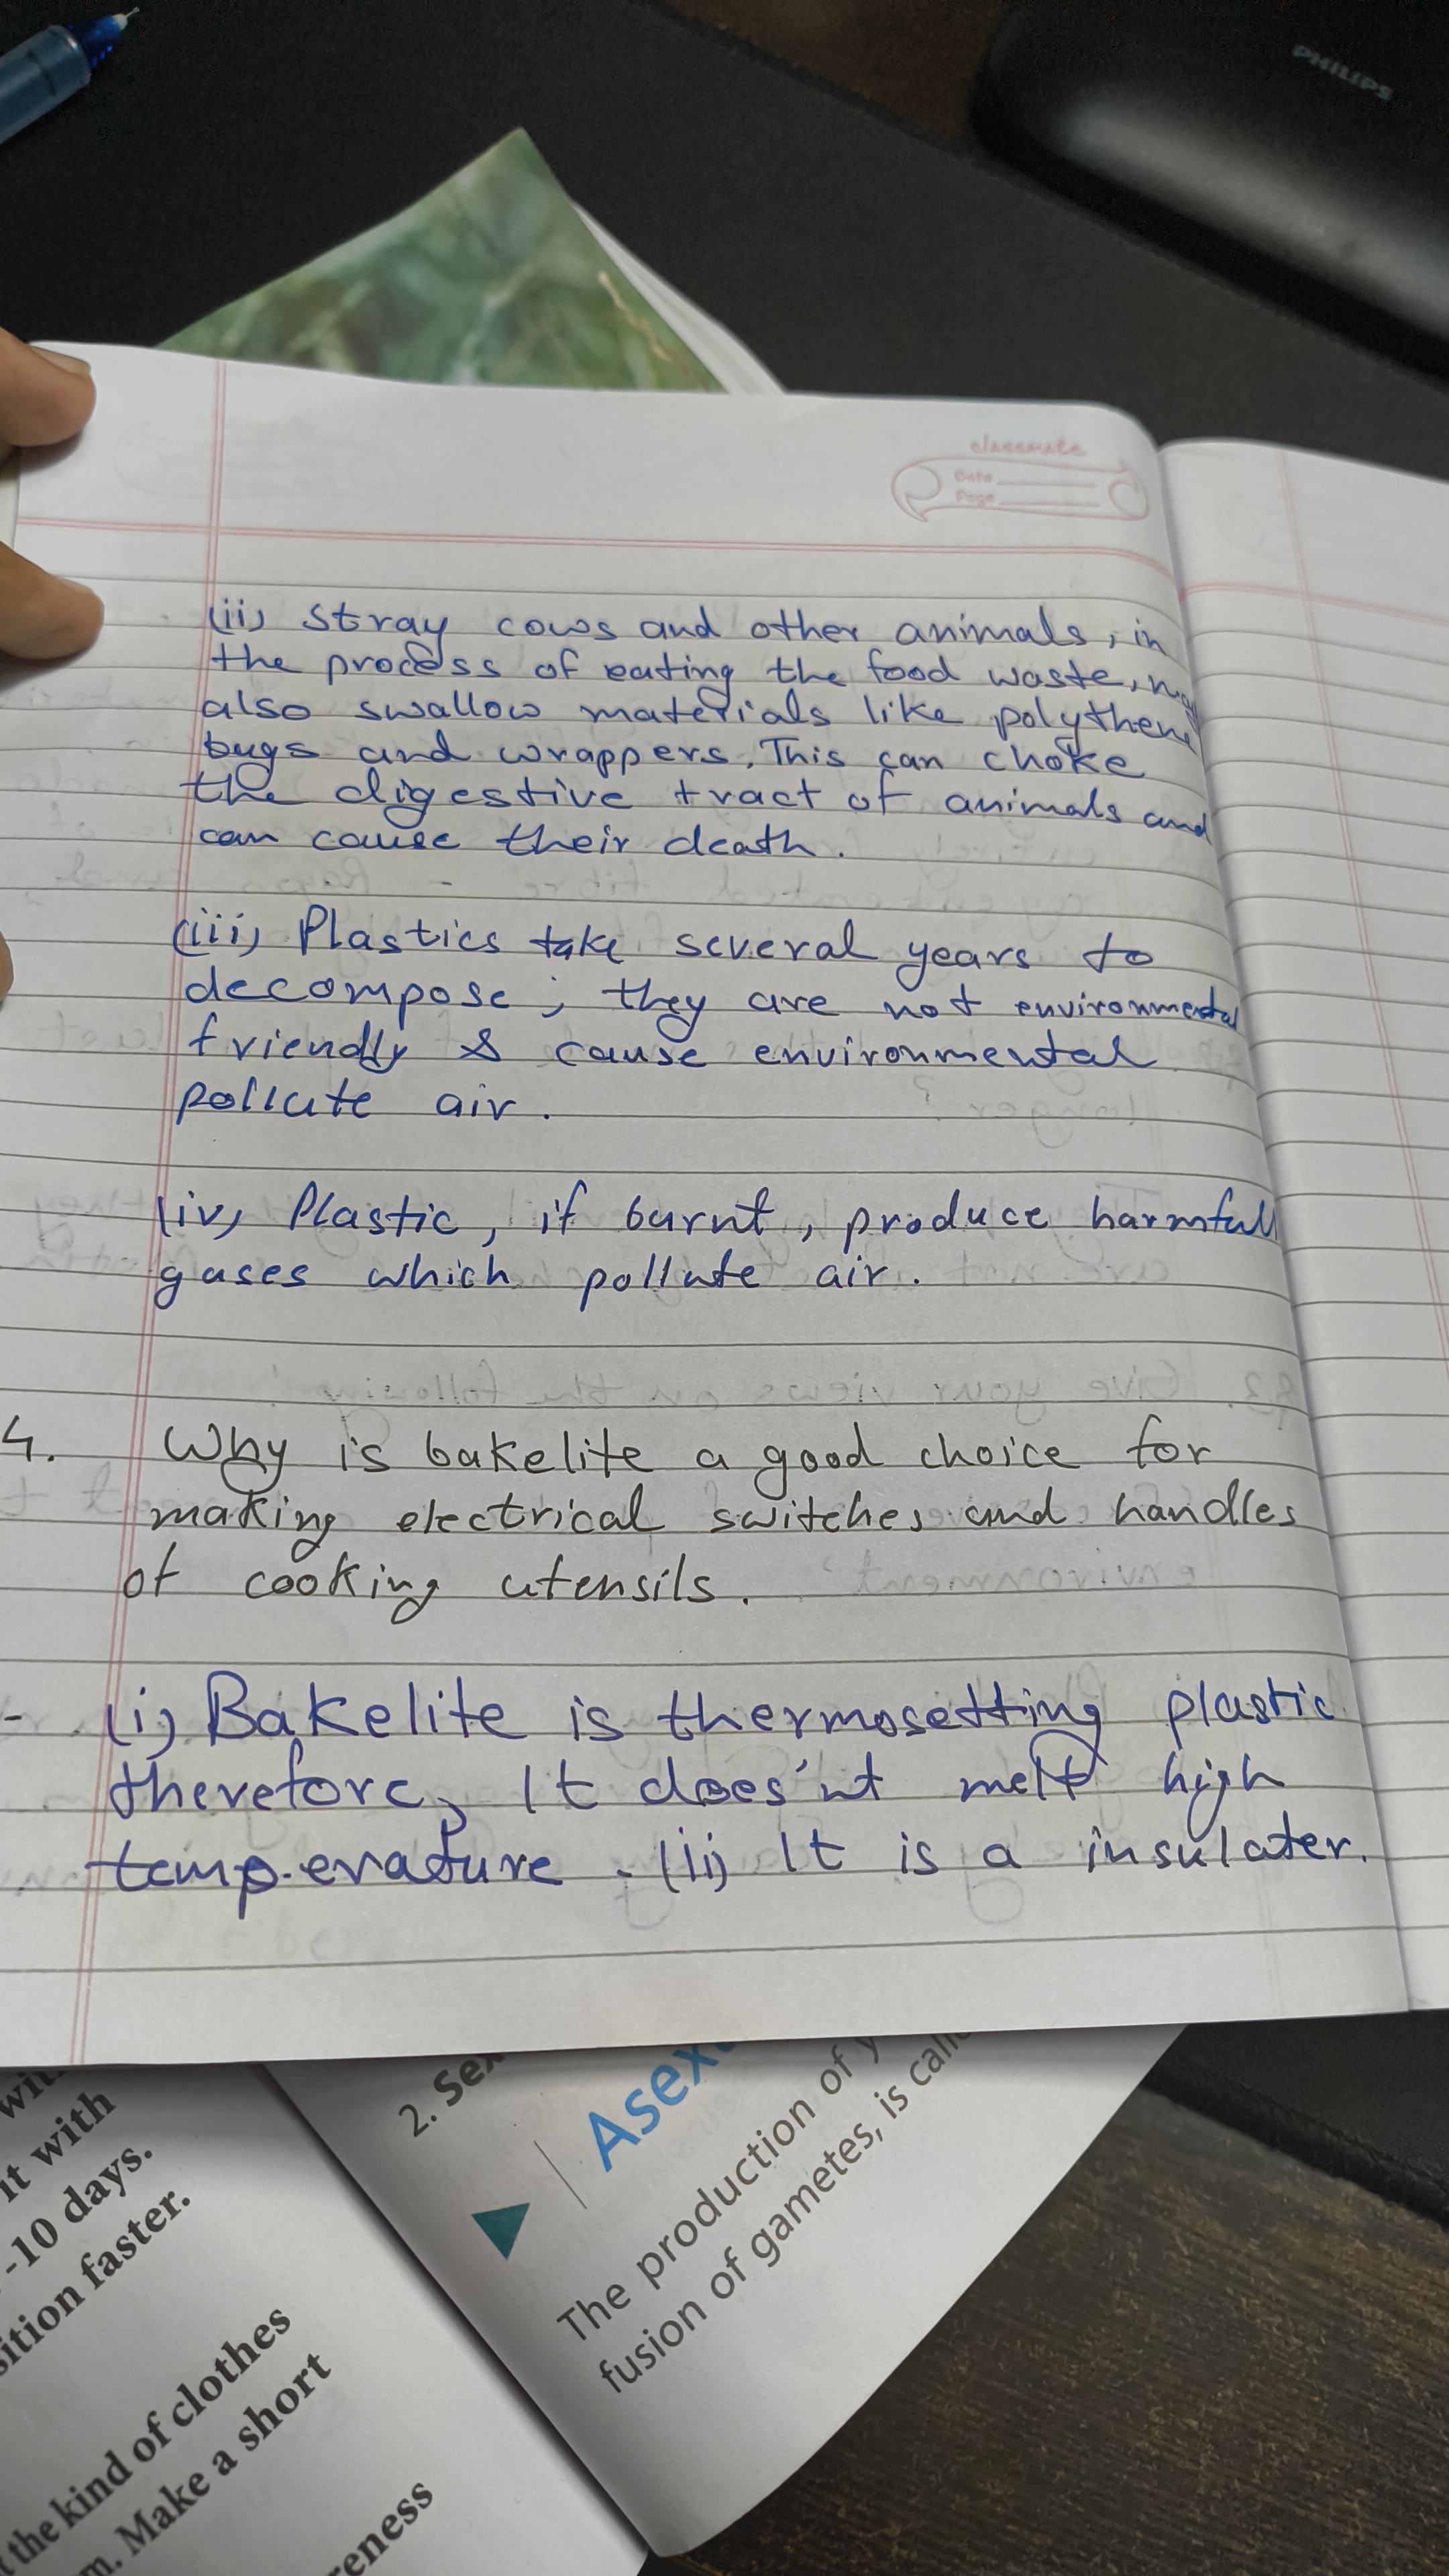 PHILIPS
classmate
Date
Page
(ii) Stray cows and other animals, in
the process of eating the food waste, may
also swallow materials like polythene
bags and wrappers. This can choke
the digestive tract of animals and
can cause their death.
(iii) Plastics take several years to
decompose; they are not environmental
friendly & cause environmental
pollute air.
(iv) Plastic, if burnt, produce harmfull
gases which pollute air.
4. Why is bakelite a good choice for
making electrical switches and handles
of cooking utensils.
- (i) Bakelite is thermosetting plastic
therefore, It does'nt melt high
temperature. (ii) It is a insulater.
it with
-10 days.
faster.
the kind of clothes
Make a short
2.
The production of
fusion of gametes, is